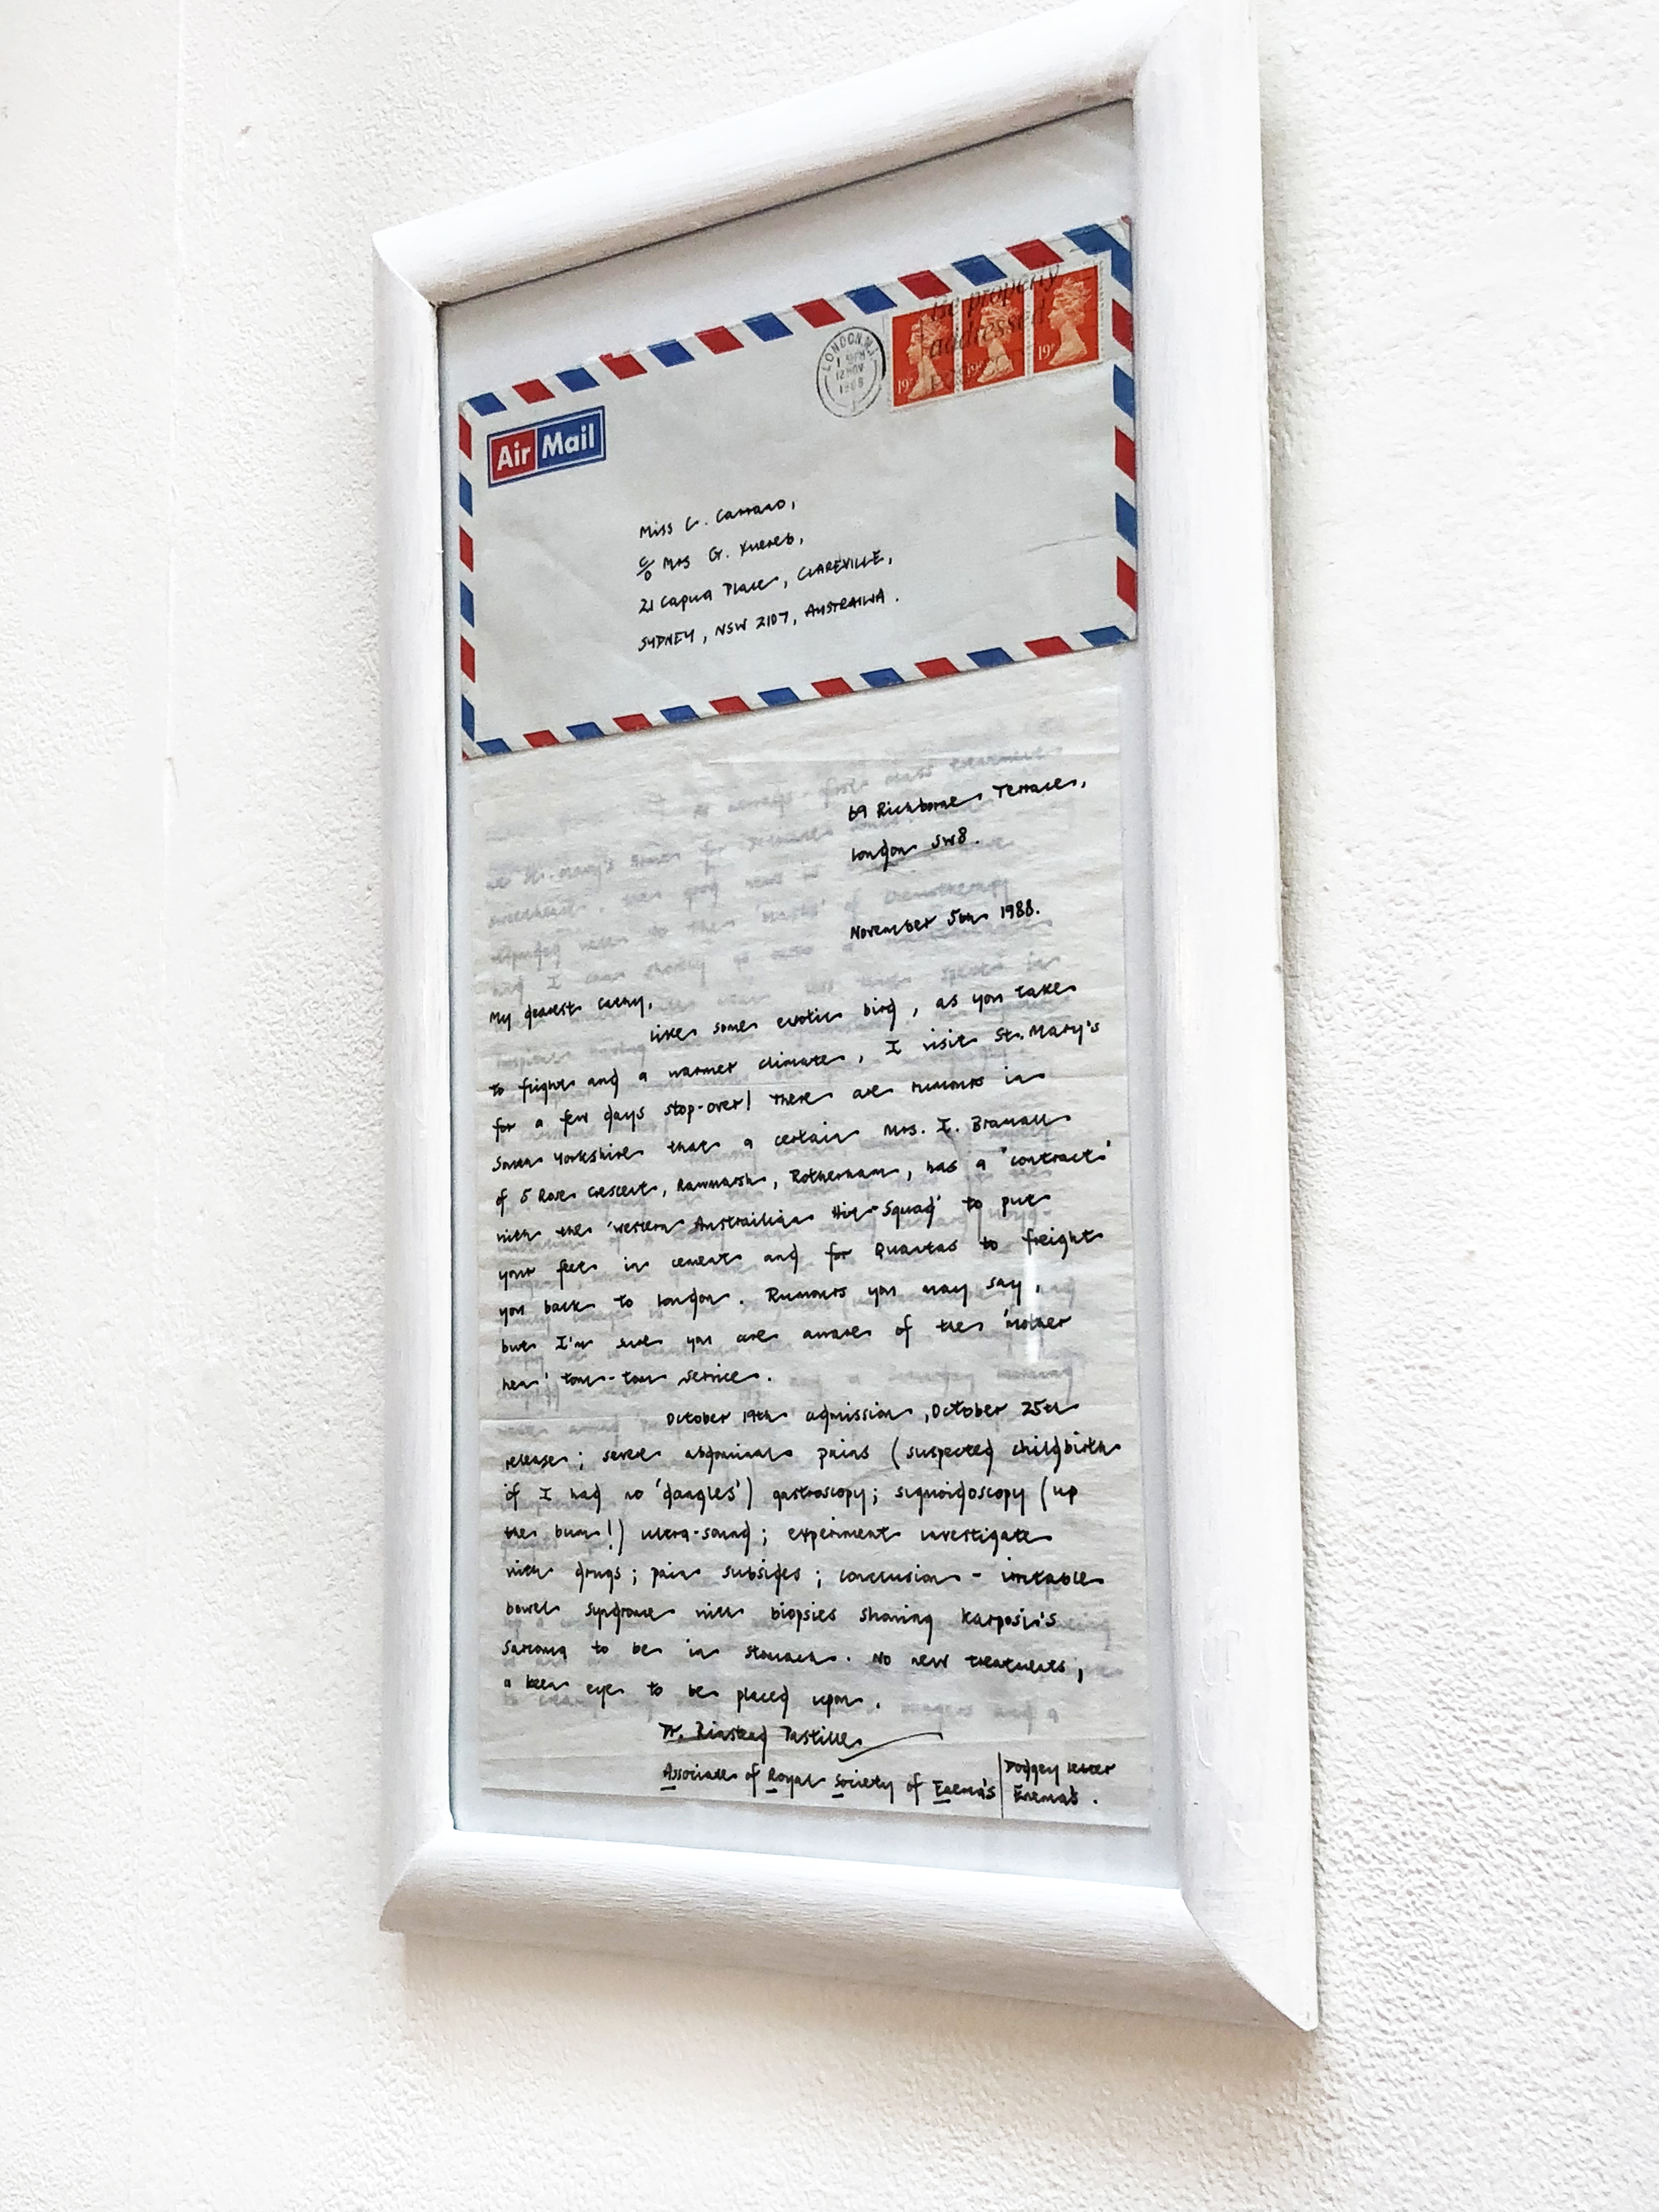 Be properly
addressed
LONDON.N.1
12 NOV
1988
19P 19P 19P
Air Mail
Miss C. Carraro,
c/o Mrs G. Xuereb,
21 Capua Place, CLAREVILLE,
SYDNEY, NSW 2107, AUSTRAILIA.
69 Richborne Terrace,
London SW8.
November 5th 1988.
My dearest Cathy,
like some exotic bird, as you take
to flight and a warmer climate, I visit St. Mary's
for a few days stop-over! There are rumours in
South Yorkshire that a certain Mrs. I. Bramall
of 5 Rose Crescent, Rawmarsh, Rotherham, has a 'contract'
with the 'Western Austrailian Hit-Squad' to put
your feet in cement and for Quantas to freight
you back to London. Rumours you may say,
but I'm sure you are aware of the 'mother
hen' tom-tom service.
October 19th admission, October 25th
release; severe abdominal pains (suspected childbirth
if I had no 'dangles') gastroscopy; sigmoidoscopy (up
the bum!) ultra-sound; experiment investigate
with drugs; pain subsides; conclusion - irritable
bowel syndrome with biopsies showing Karposi's
Sarcoma to be in stomach. No new treatments,
a keen eye to be placed upon.
Dr. Pastille
Associate of Royal Society of Enema's | Dodgey letter
Enema's.